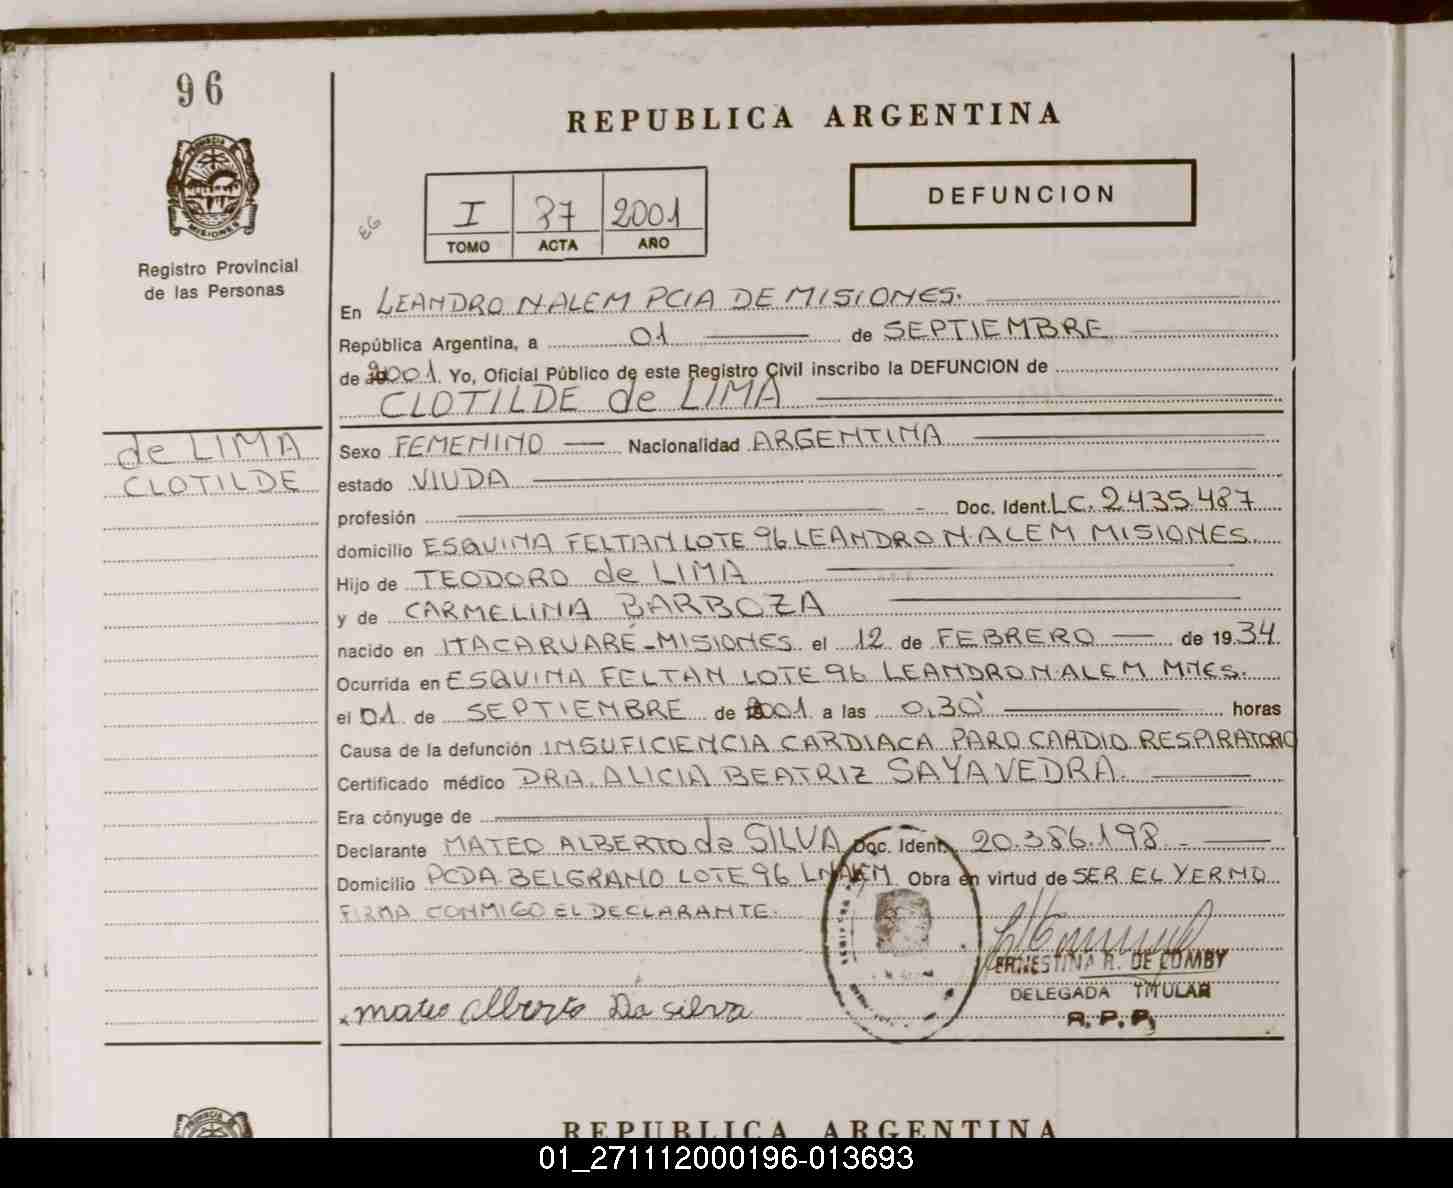 96
REPUBLICA ARGENTINA
PROVINCIA
MISIONES
Registro Provincial
de las Personas
EG
I 37 2001
TOMO ACTA AÑO
DEFUNCION
En LEANDRO N. ALEM PCIA DE MISIONES.
República Argentina, a 01 de SEPTIEMBRE
de 2001. Yo, Oficial Público de este Registro Civil inscribo la DEFUNCION de
CLOTILDE de LIMA
de LIMA
CLOTILDE
Sexo FEMENINO Nacionalidad ARGENTINA
estado VIUDA
profesión Doc. Ident. LC. 2.435.487
domicilio ESQUINA FELTAN LOTE 96 LEANDRO N. ALEM MISIONES.
Hijo de TEODORO de LIMA
y de CARMELINA BARBOZA
nacido en ITACARUARÉ-MISIONES el 12 de FEBRERO de 1934.
Ocurrida en ESQUINA FELTAN LOTE 96 LEANDRO N. ALEM MNES.
el 01 de SEPTIEMBRE de 2001 a las 0,30' horas
Causa de la defunción INSUFICIENCIA CARDIACA PARO CARDIO RESPIRATORIO
Certificado médico DRA. ALICIA BEATRIZ SAYAVEDRA.
Era cónyuge de
Declarante MATEO ALBERTO da SILVA Doc. Ident. 20.386.198.-
Domicilio PCDA BELGRANO LOTE 96 L N ALEM Obra en virtud de SER EL YERNO
FIRMA CONMIGO EL DECLARANTE.
mateo alberto Da silva
ERNESTINA R. DE COMBY
DELEGADA TITULAR
R. P. P.
REPUBLICA ARGENTINA
PROVINCIA
01_271112000196-013693